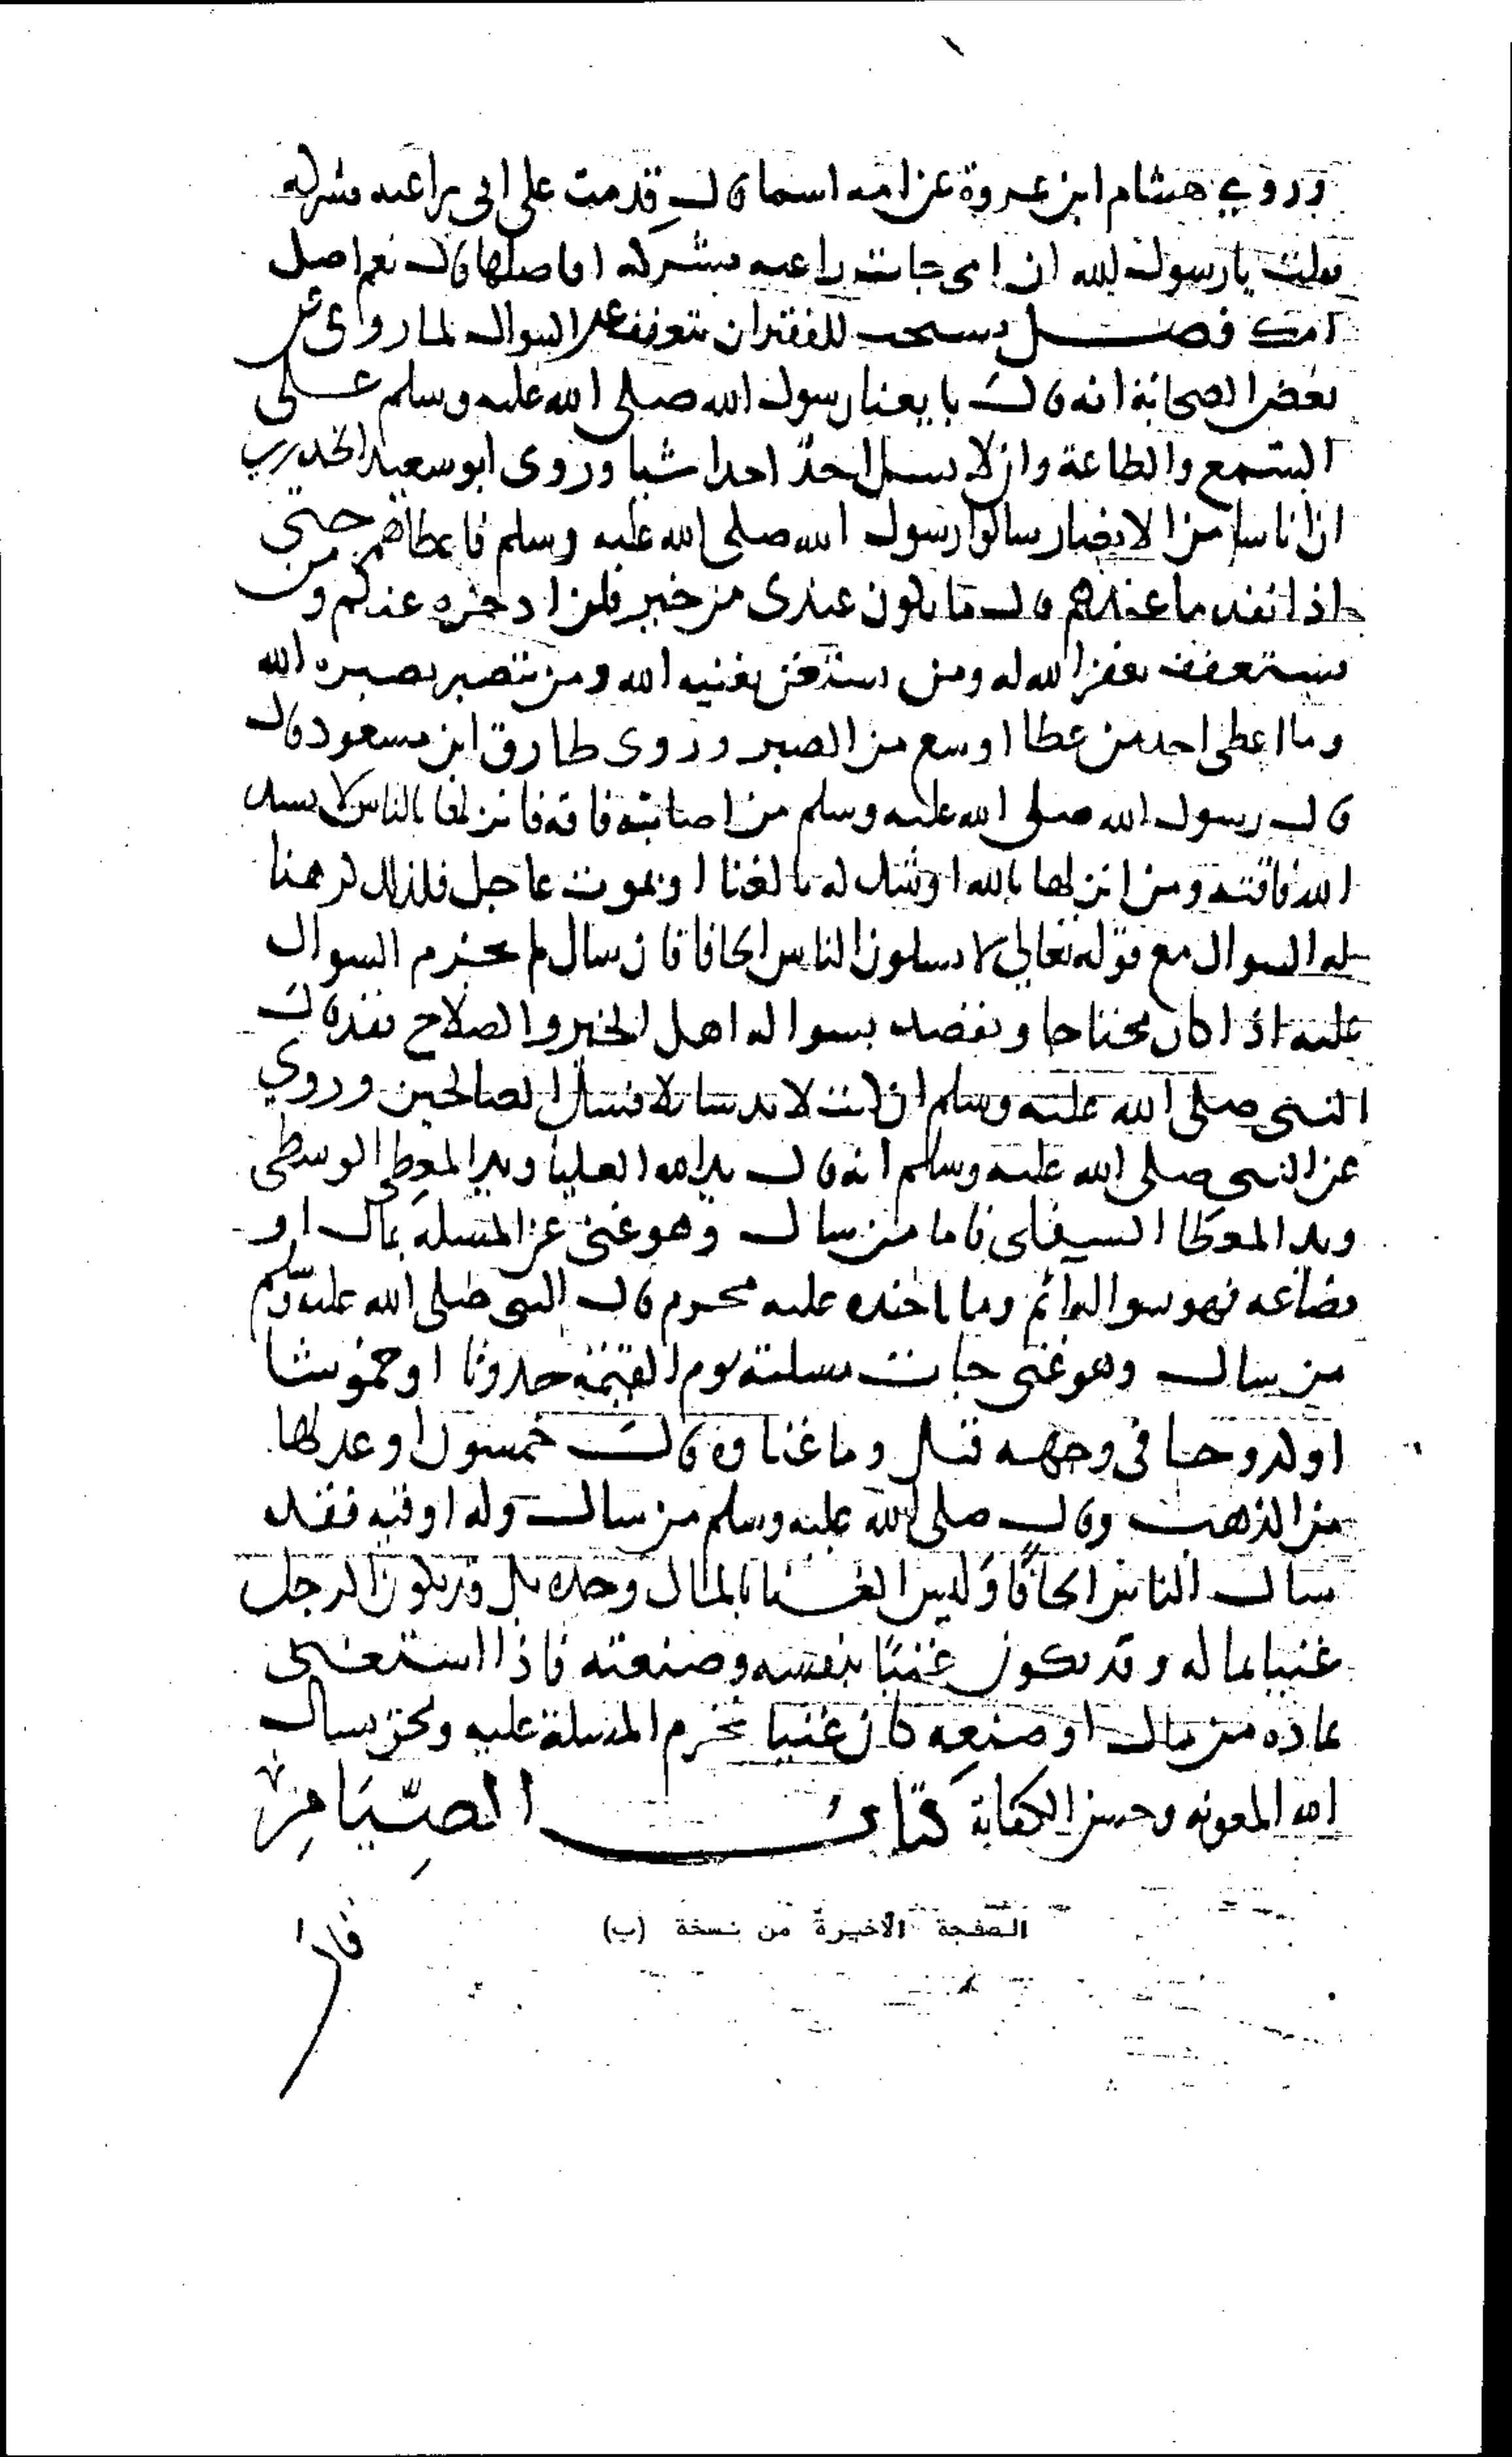 وروي هشام ابن عروة عن امه اسما قال قدمت على امي راغبه مشركه
فقلت يا رسول الله ان امي جات راغبه مشركه افاصلها قال نعم اصل
امك فصل يستحب للفقير ان يتعفف عن السوال لما روي عن
بعض الصحابة انه قال بايعنا رسول الله صلى الله عليه وسلم على
السمع والطاعة وان لا يسل احد احدا شيا وروى ابو سعيد الخدري
ان ناسا من الانصار سالوا رسول الله صلى الله عليه وسلم فاعطاهم حتى
اذا نفد ما عنده قال ما يكون عندي من خير فلن ادخره عنكم ومن
يستعفف يعفه الله له ومن يستغن يغنيه الله ومن يتصبر يصبره الله
وما اعطي احد من عطا اوسع من الصبر وروى طارق ابن مسعود قال
قال رسول الله صلى الله عليه وسلم من اصابته فاقه فانزلها بالناس لا يسد
الله فاقته ومن انزلها بالله اوشك له بالغنا او بموت عاجل فلذلك كرهنا
له السوال مع قوله تعالى لا يسلون الناس الحافا فان سال لم يحرم السوال
عليه اذا كان محتاجا ويقصد بسواله اهل الخير والصلاح فقد قال
النبي صلى الله عليه وسلم ان كنت لابد سايلا فسل الصالحين وروي
عن النبي صلى الله عليه وسلم انه قال يد الله العليا ويد المعطي الوسطى
ويد المعطا السفلى فاما من سال وهو غني عن المسلة بمال او
بضاعه فهو بسواله اثم وما ياخذه عليه محرم قال النبي صلى الله عليه وسلم
من سال وهو غني جات مسلته يوم القيمة خدوشا او خموشا
او كدوحا في وجهه قيل وما غناه قال خمسون او عدلها
من الذهب وقال صلى الله عليه وسلم من سال وله اوقيه فقد
سال الناس الحافا وليس الغنا بالمال وحده بل قد يكون الرجل
غنيا بماله وقد يكون غنيا بنفسه وصنعته فاذا استغنى
بماده من مال او صنعه كان غنيا تحرم المسلة عليه ونحن نسال
الله المعونه وحسن الكفاية كتاب الصيام
الصفحة الأخيرة من نسخة (ب)